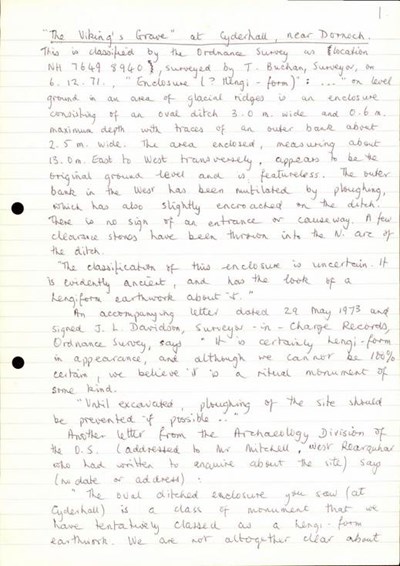 1.
"The Viking's Grave" at Cyderhall, near Dornoch.
This is classified by the Ordnance Survey as (location
NH 7649 8940), surveyed by T. Buchan, Surveyor, on
6.12.71., "Enclosure (? Hengi-form)": ... "on level
ground in an area of glacial ridges is an enclosure
consisting of an oval ditch 3.0 m. wide and 0.6 m.
maximum depth with traces of an outer bank about
2.5 m. wide. The area enclosed, measuring about
13.0m. East to West transversely, appears to be the
original ground level and is featureless. The outer
bank in the West has been mutilated by ploughing,
which has also slightly encroached on the ditch.
There is no sign of an entrance or causeway. A few
clearance stones have been thrown into the N. arc of
the ditch.
"The classification of this enclosure is uncertain. It
is evidently ancient, and has the look of a
hengiform earthwork about it."
An accompanying letter dated 29 May 1973 and
signed J. L. Davidson, Surveyor-in-Charge Records,
Ordnance Survey, says "It is certainly hengi-form
in appearance, and although we cannot be 100%
certain, we believe it is a ritual monument of
some kind.
"Until excavated, ploughing of the site should
be prevented if possible .."
Another letter from the Archaeology Division of
the O.S. (addressed to Mr Mitchell, West Rearquhar
who had written to enquire about the site) says
(no date or address) :
"The oval ditched enclosure you saw (at
Cyderhall) is a class of monument that we
have tentatively classed as a hengi-form
earthwork. We are not altogether clear about